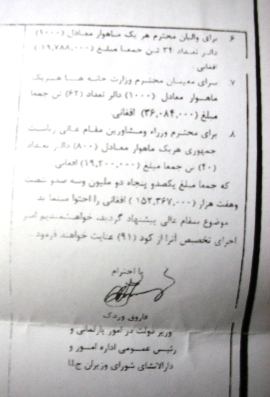 ۶. برای والیان محترم هر یک ماهوار معادل (۱۰۰۰)
دالر تعداد ۳۴ تن جمعا مبلغ (۱۹,۷۸۸,۰۰۰)
افغانی.
۷. برای معینان محترم وزارت خانه ها هر یک
ماهوار معادل (۱۰۰۰) دالر تعداد (۶۲) تن جمعا
مبلغ (۳۶,۰۸۴,۰۰۰) افغانی
۸. برای محترم وزراء ومشاورین مقام عالی ریاست
جمهوری هریک ماهوار معادل (۸۰۰) دالر تعداد
(۴۰) تن جمعا مبلغ (۱۹,۲۰۰,۰۰۰) افغانی
که جمعا مبلغ یکصدو پنجاه دو ملیون وسه صدو شصت
وهفت هزار (۱۵۲,۳۶۷,۰۰۰) افغانی را احتوا مینماید
موضوع بمقام عالی پیشنهاد گردید، خواهشمندیم امر
اجرای تخصیص آنرا از کود (۹۱) عنایت خواهند فرمود.
با احترام
فاروق وردک
وزیر دولت در امور پارلمانی و
رئیس عمومی اداره امور و
دارالانشای شورای وزیران ج.ا.ا